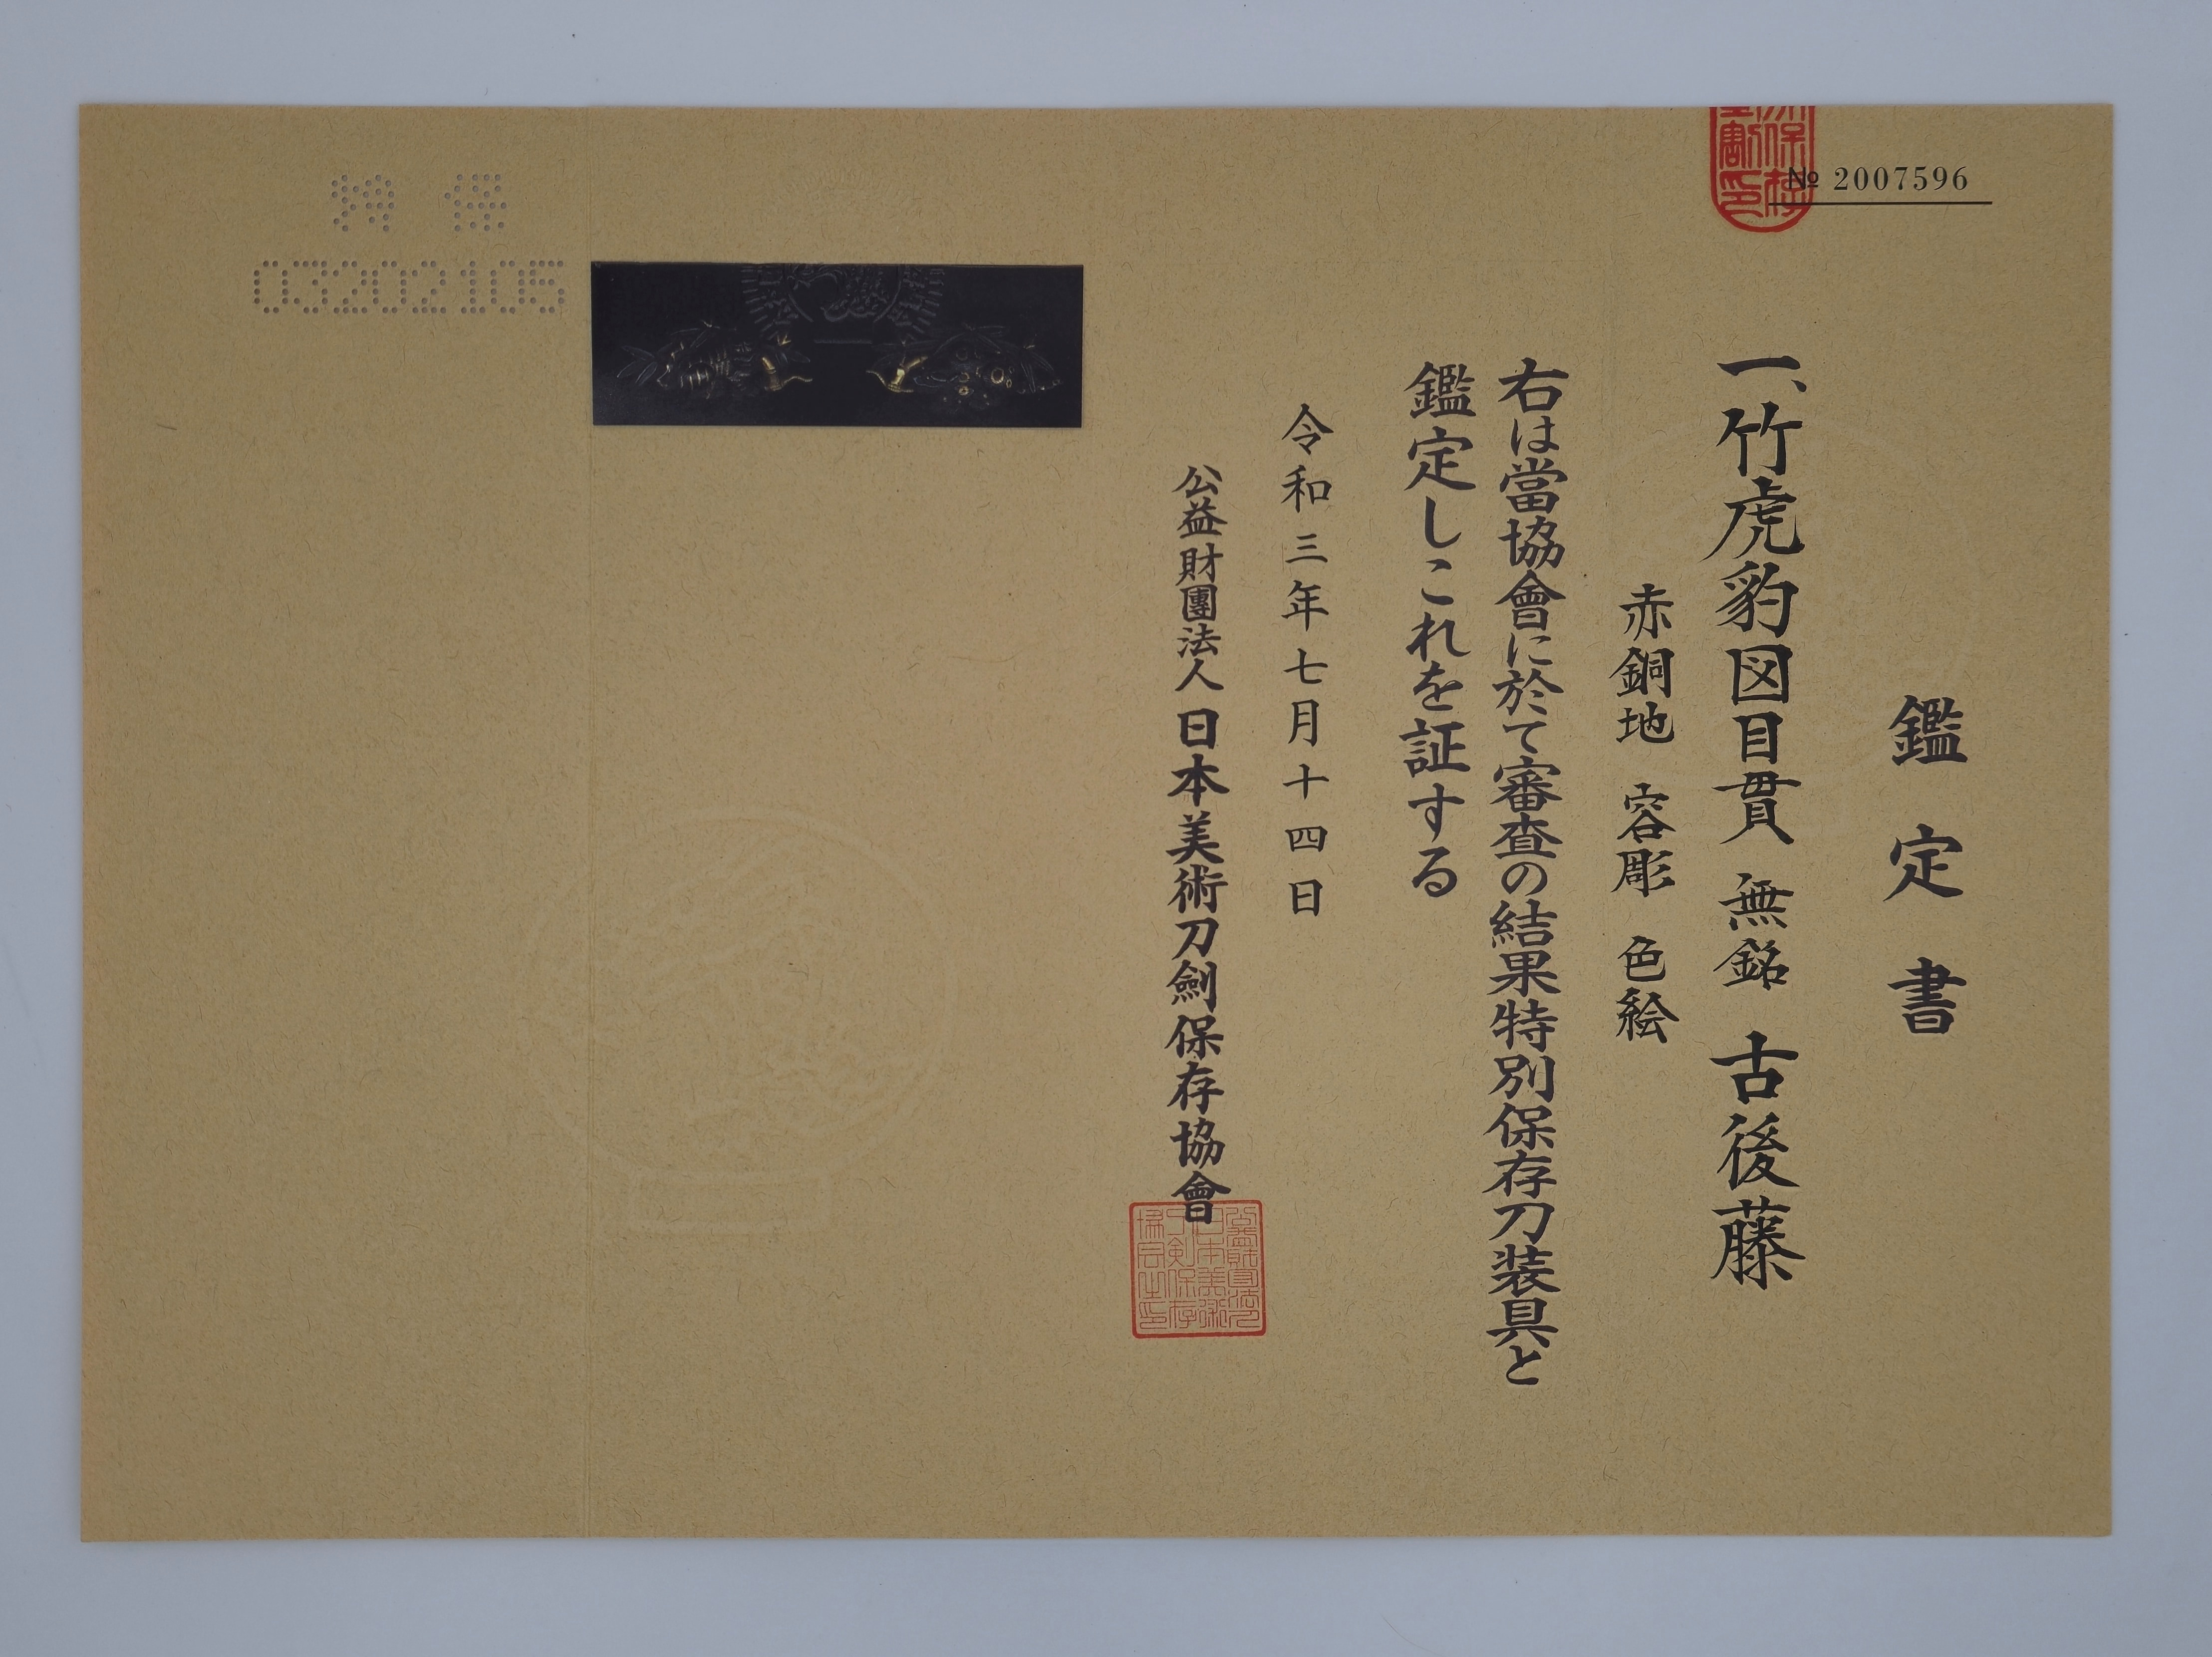 № 2007596
鑑定書
一、竹虎豹図目貫 無銘 古後藤
赤銅地 容彫 色絵
右は當協會に於て審査の結果特別保存刀装具と
鑑定しこれを証する
令和三年七月十四日
公益財團法人 日本美術刀劍保存協會
03202105